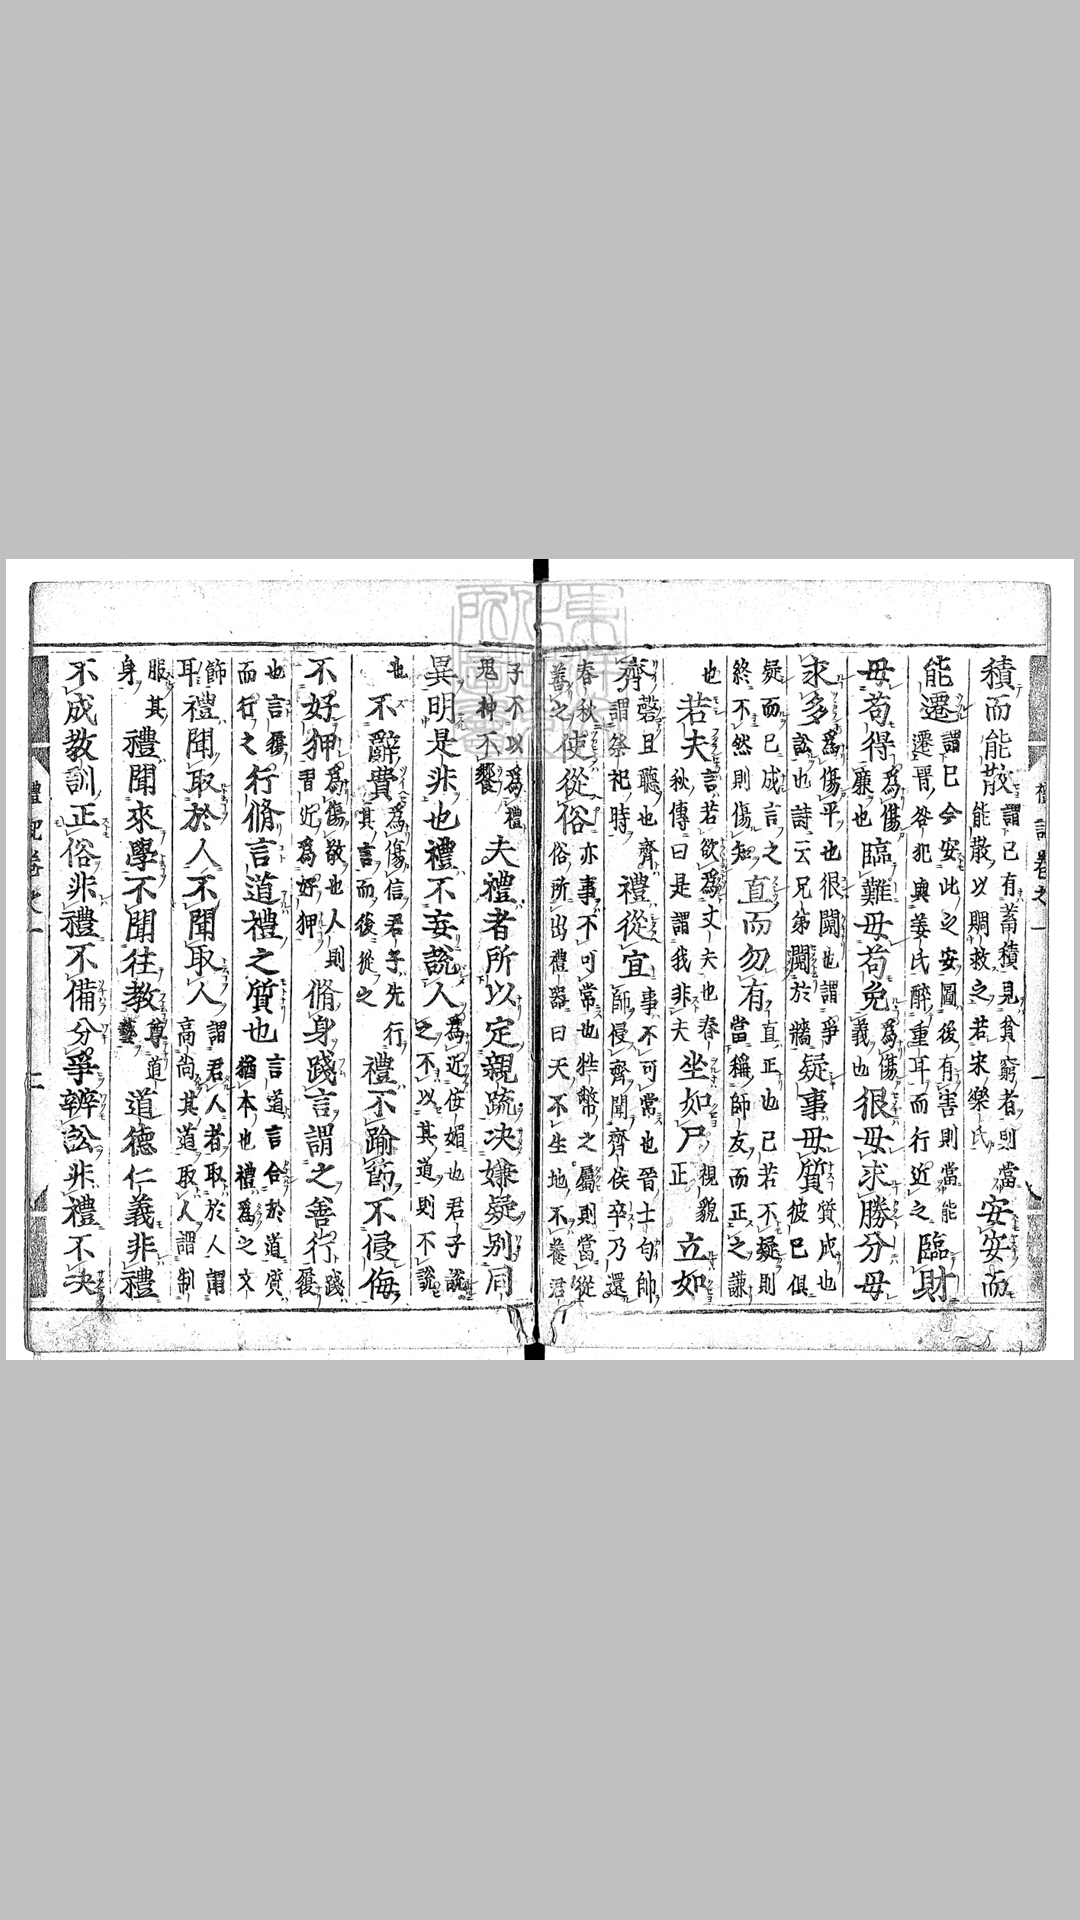 禮記卷之一
積而能散謂己有蓄積見貧窮者則當能散以賙救之若宋樂氏安安而
能遷謂己今安此之安圖後有害則當能遷晋咎犯與姜氏醉重耳而行近之臨財
毋苟得為傷廉也臨難毋苟免為傷義也很毋求勝分毋
求多為傷平也很鬩也謂爭訟也詩云兄弟鬩於牆疑事毋質質成也彼已俱
疑而已成言之終不然則傷知直而勿有直正也已若不疑則當稱師友而正之謙
也若夫言若欲為丈夫也春秋傳曰是謂我非夫坐如尸視貌正立如
齊磬且聽也齊謂祭祀時禮從宜事不可常也晉士匄帥師侵齊聞齊侯卒乃還
春秋善之使從俗亦事不可常也牲幣之屬則當從俗所出禮器曰天不生地不養君
子不以為禮鬼神不饗夫禮者所以定親疏决嫌疑别同
異明是非也禮不妄說人為近佞媚也君子說之不以其道則不說
也不辭費為傷信君子先行其言而後從之禮不踰節不侵侮
不好狎為傷敬也人則習近為好狎脩身踐言謂之善行踐履
也言履而行之行脩言道禮之質也言道言合於道質猶本也禮為之文
飾耳禮聞取於人不聞取人謂君人者取於人謂高尚其道取人謂制
服其身禮聞來學不聞往教尊道藝道德仁義非禮
不成教訓正俗非禮不備分爭辨訟非禮不决
禮記卷之一
二